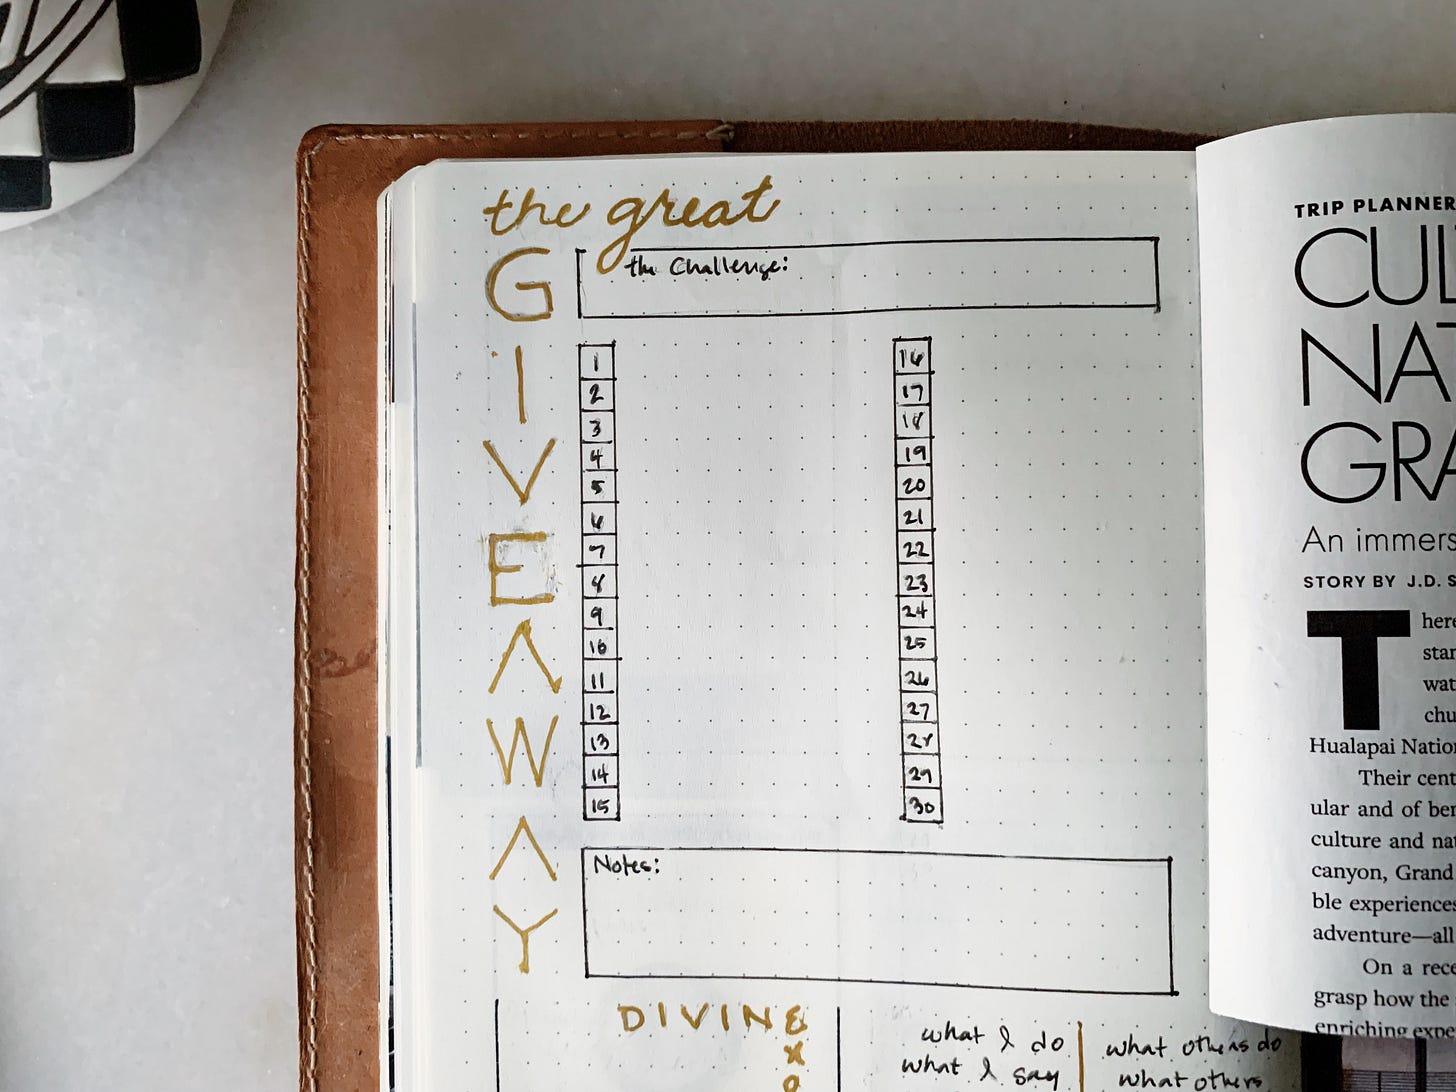 the great
GIVEAWAY
the Challenge:
1
2
3
4
5
6
7
8
9
10
11
12
13
14
15
16
17
18
19
20
21
22
23
24
25
26
27
28
29
30
Notes:
DIVINE
what I do
what I say
what others do
what others
TRIP PLANNER
CUL
NAT
GRA
An immers
STORY BY J.D. S
There
star
wat
chu
Hualapai Nation
Their cent
ular and of ben
culture and nat
canyon, Grand
ble experiences
adventure—all
On a rece
grasp how the
enriching expe